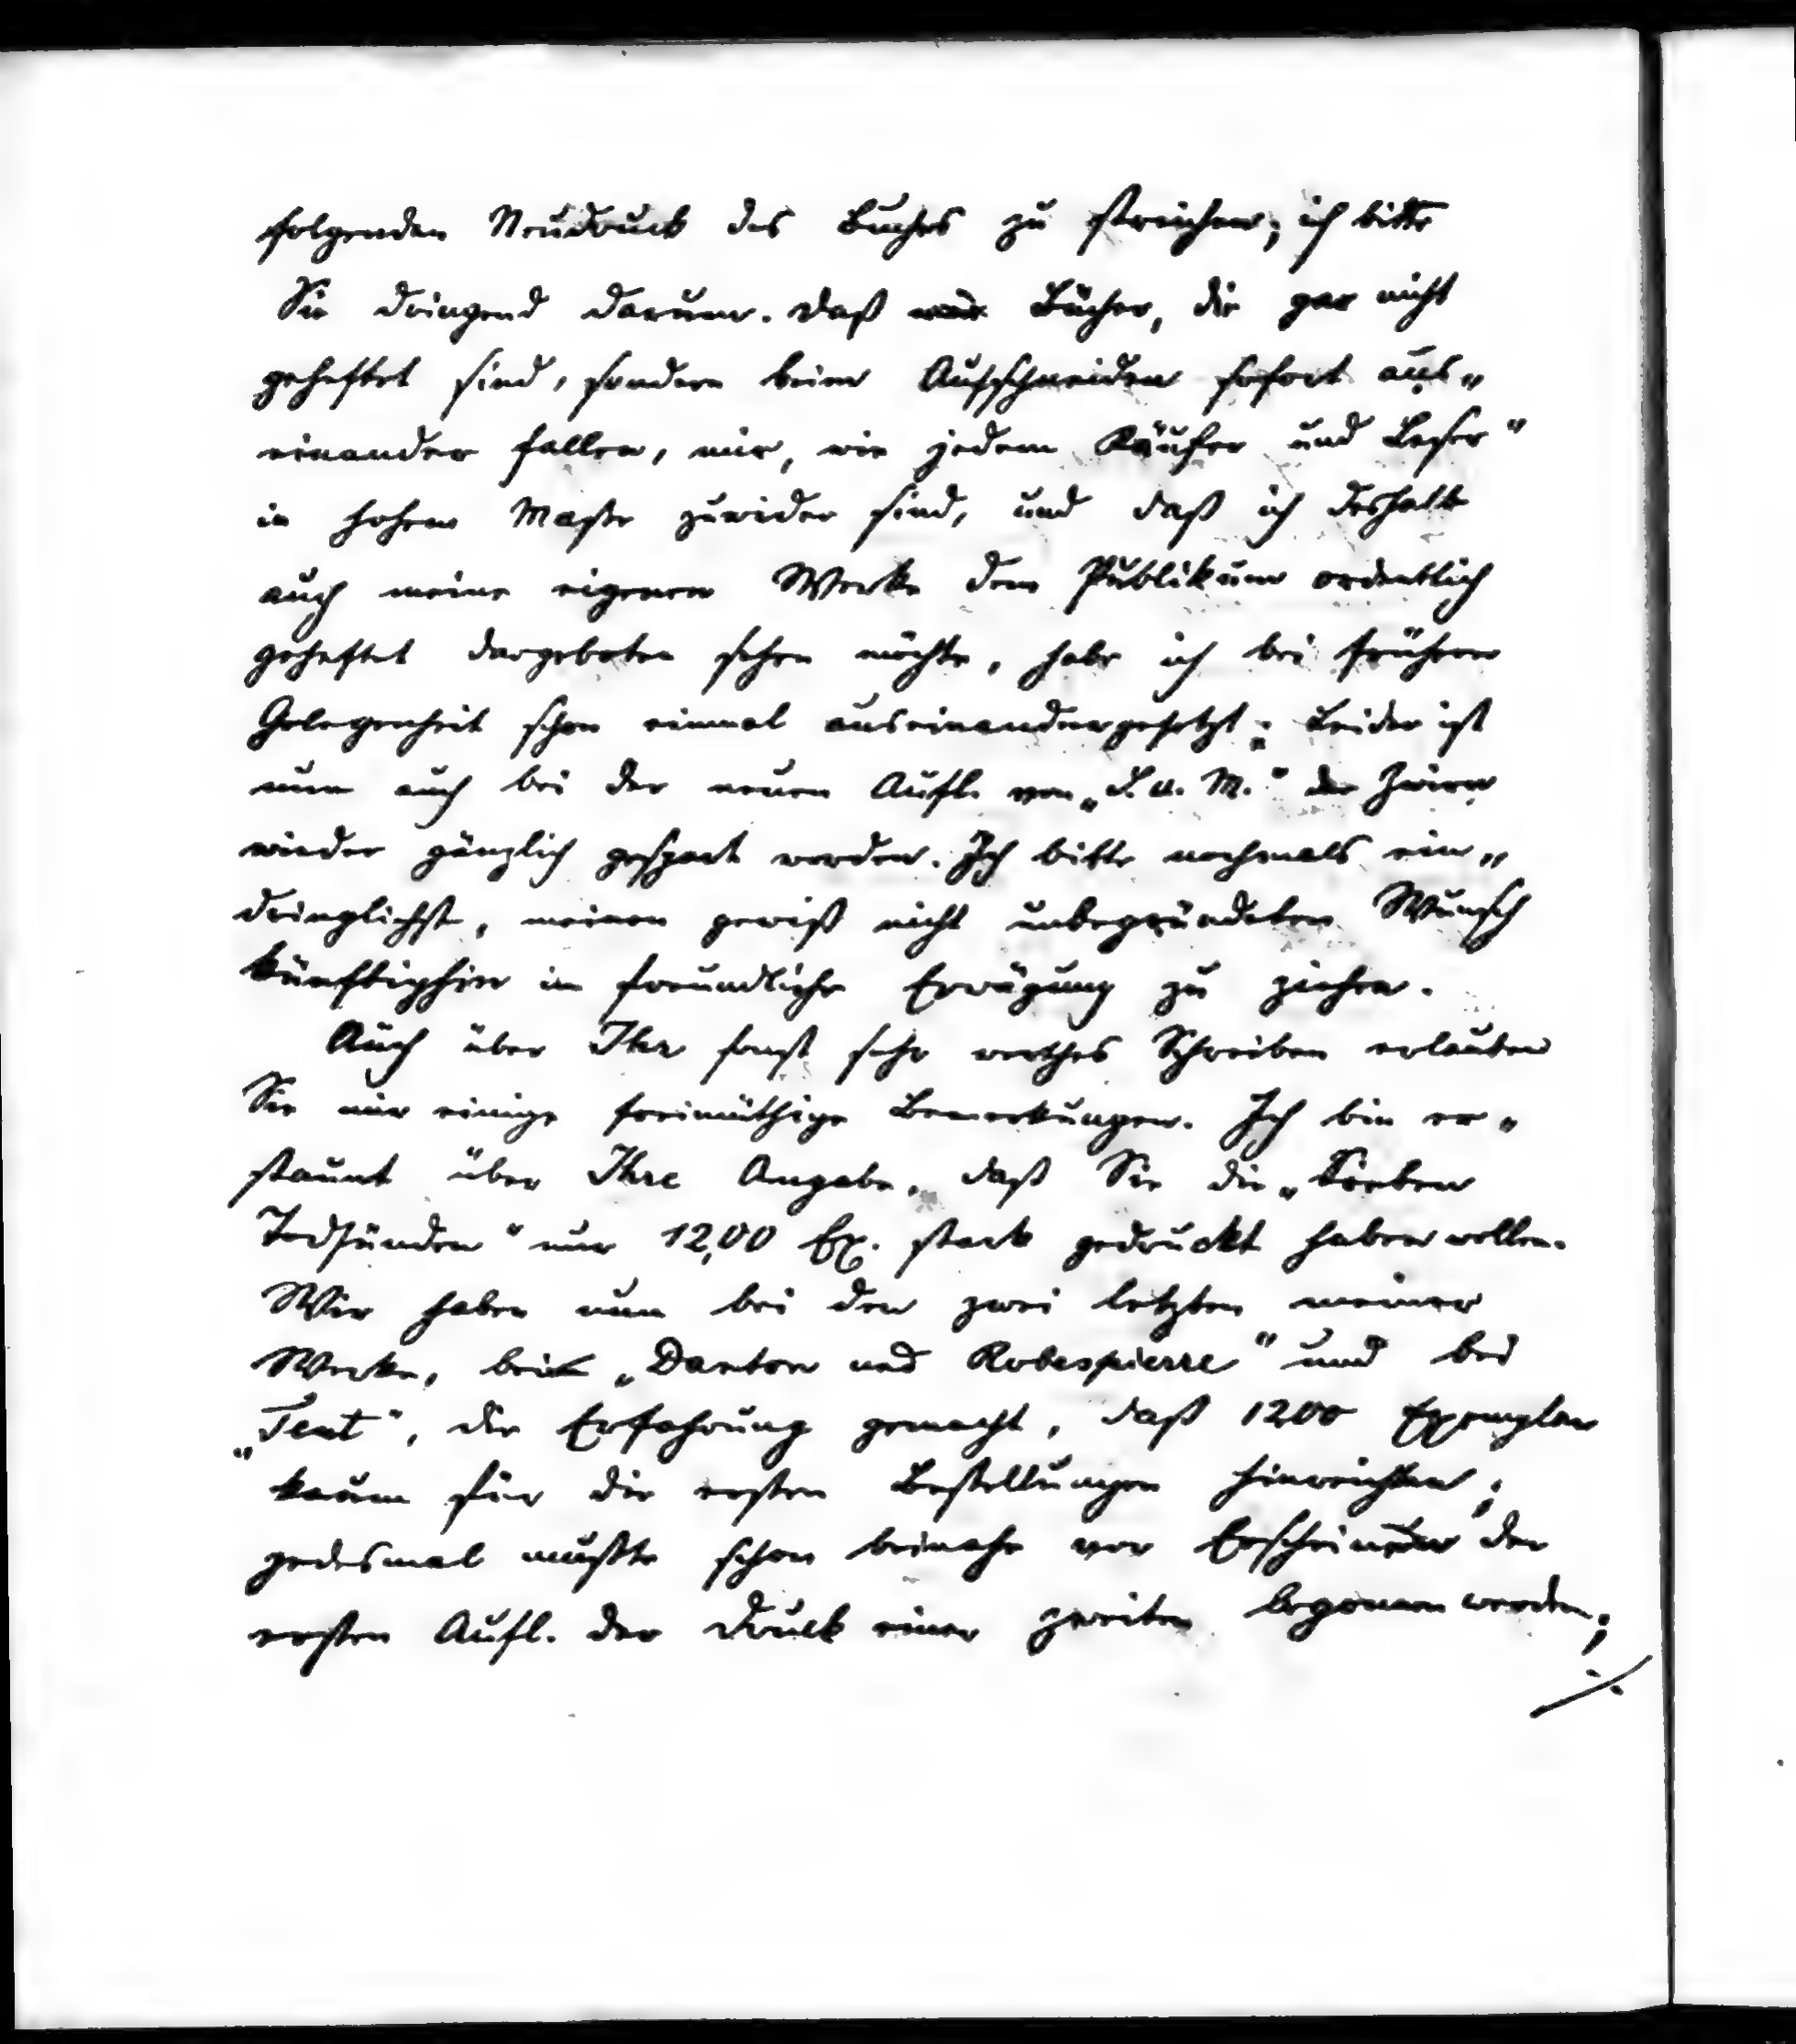 folgenden Neudruck des Buches zu streichen; ich bitte
Sie dringend darum. Daß mir Bücher, die gar nicht
geheftet sind, sondern beim Aufschneiden sofort aus„
einander fallen, mir, wie jedem Käufer und Leser"
in hohem Maße zuwider sind, und daß ich deshalb
auch meine eigenen Werke dem Publikum ordentlich
geheftet dargeboten sehen möchte, habe ich bei früherer
Gelegenheit schon einmal auseinandergesetzt; leider ist
nun auch bei der neuen Aufl. von „S. u. M." der Zwirn
wieder gänzlich gespart worden. Ich bitte nochmals ein„
dringlichst, meinen gewiß nicht unbegründeten Wunsch
künftighin in freundliche Erwägung zu ziehen.
Auch über Ihr sonst sehr werthes Schreiben erlauben
Sie mir einige freimüthige Bemerkungen. Ich bin er„
staunt über Ihre Angabe, daß Sie die „Sieben
Todsünden" nur 1200 Ex. stark gedruckt haben wollen.
Wir haben nun bei den zwei letzten meiner
Werke, bei „Danton und Robespierre" und bei
„Teut", die Erfahrung gemacht, daß 1200 Exemplare
kaum für die ersten Bestellungen hinreichten;
jedesmal mußte schon beinahe vor Erscheinen der
ersten Aufl. der Druck einer zweiten begonnen werden;
./.